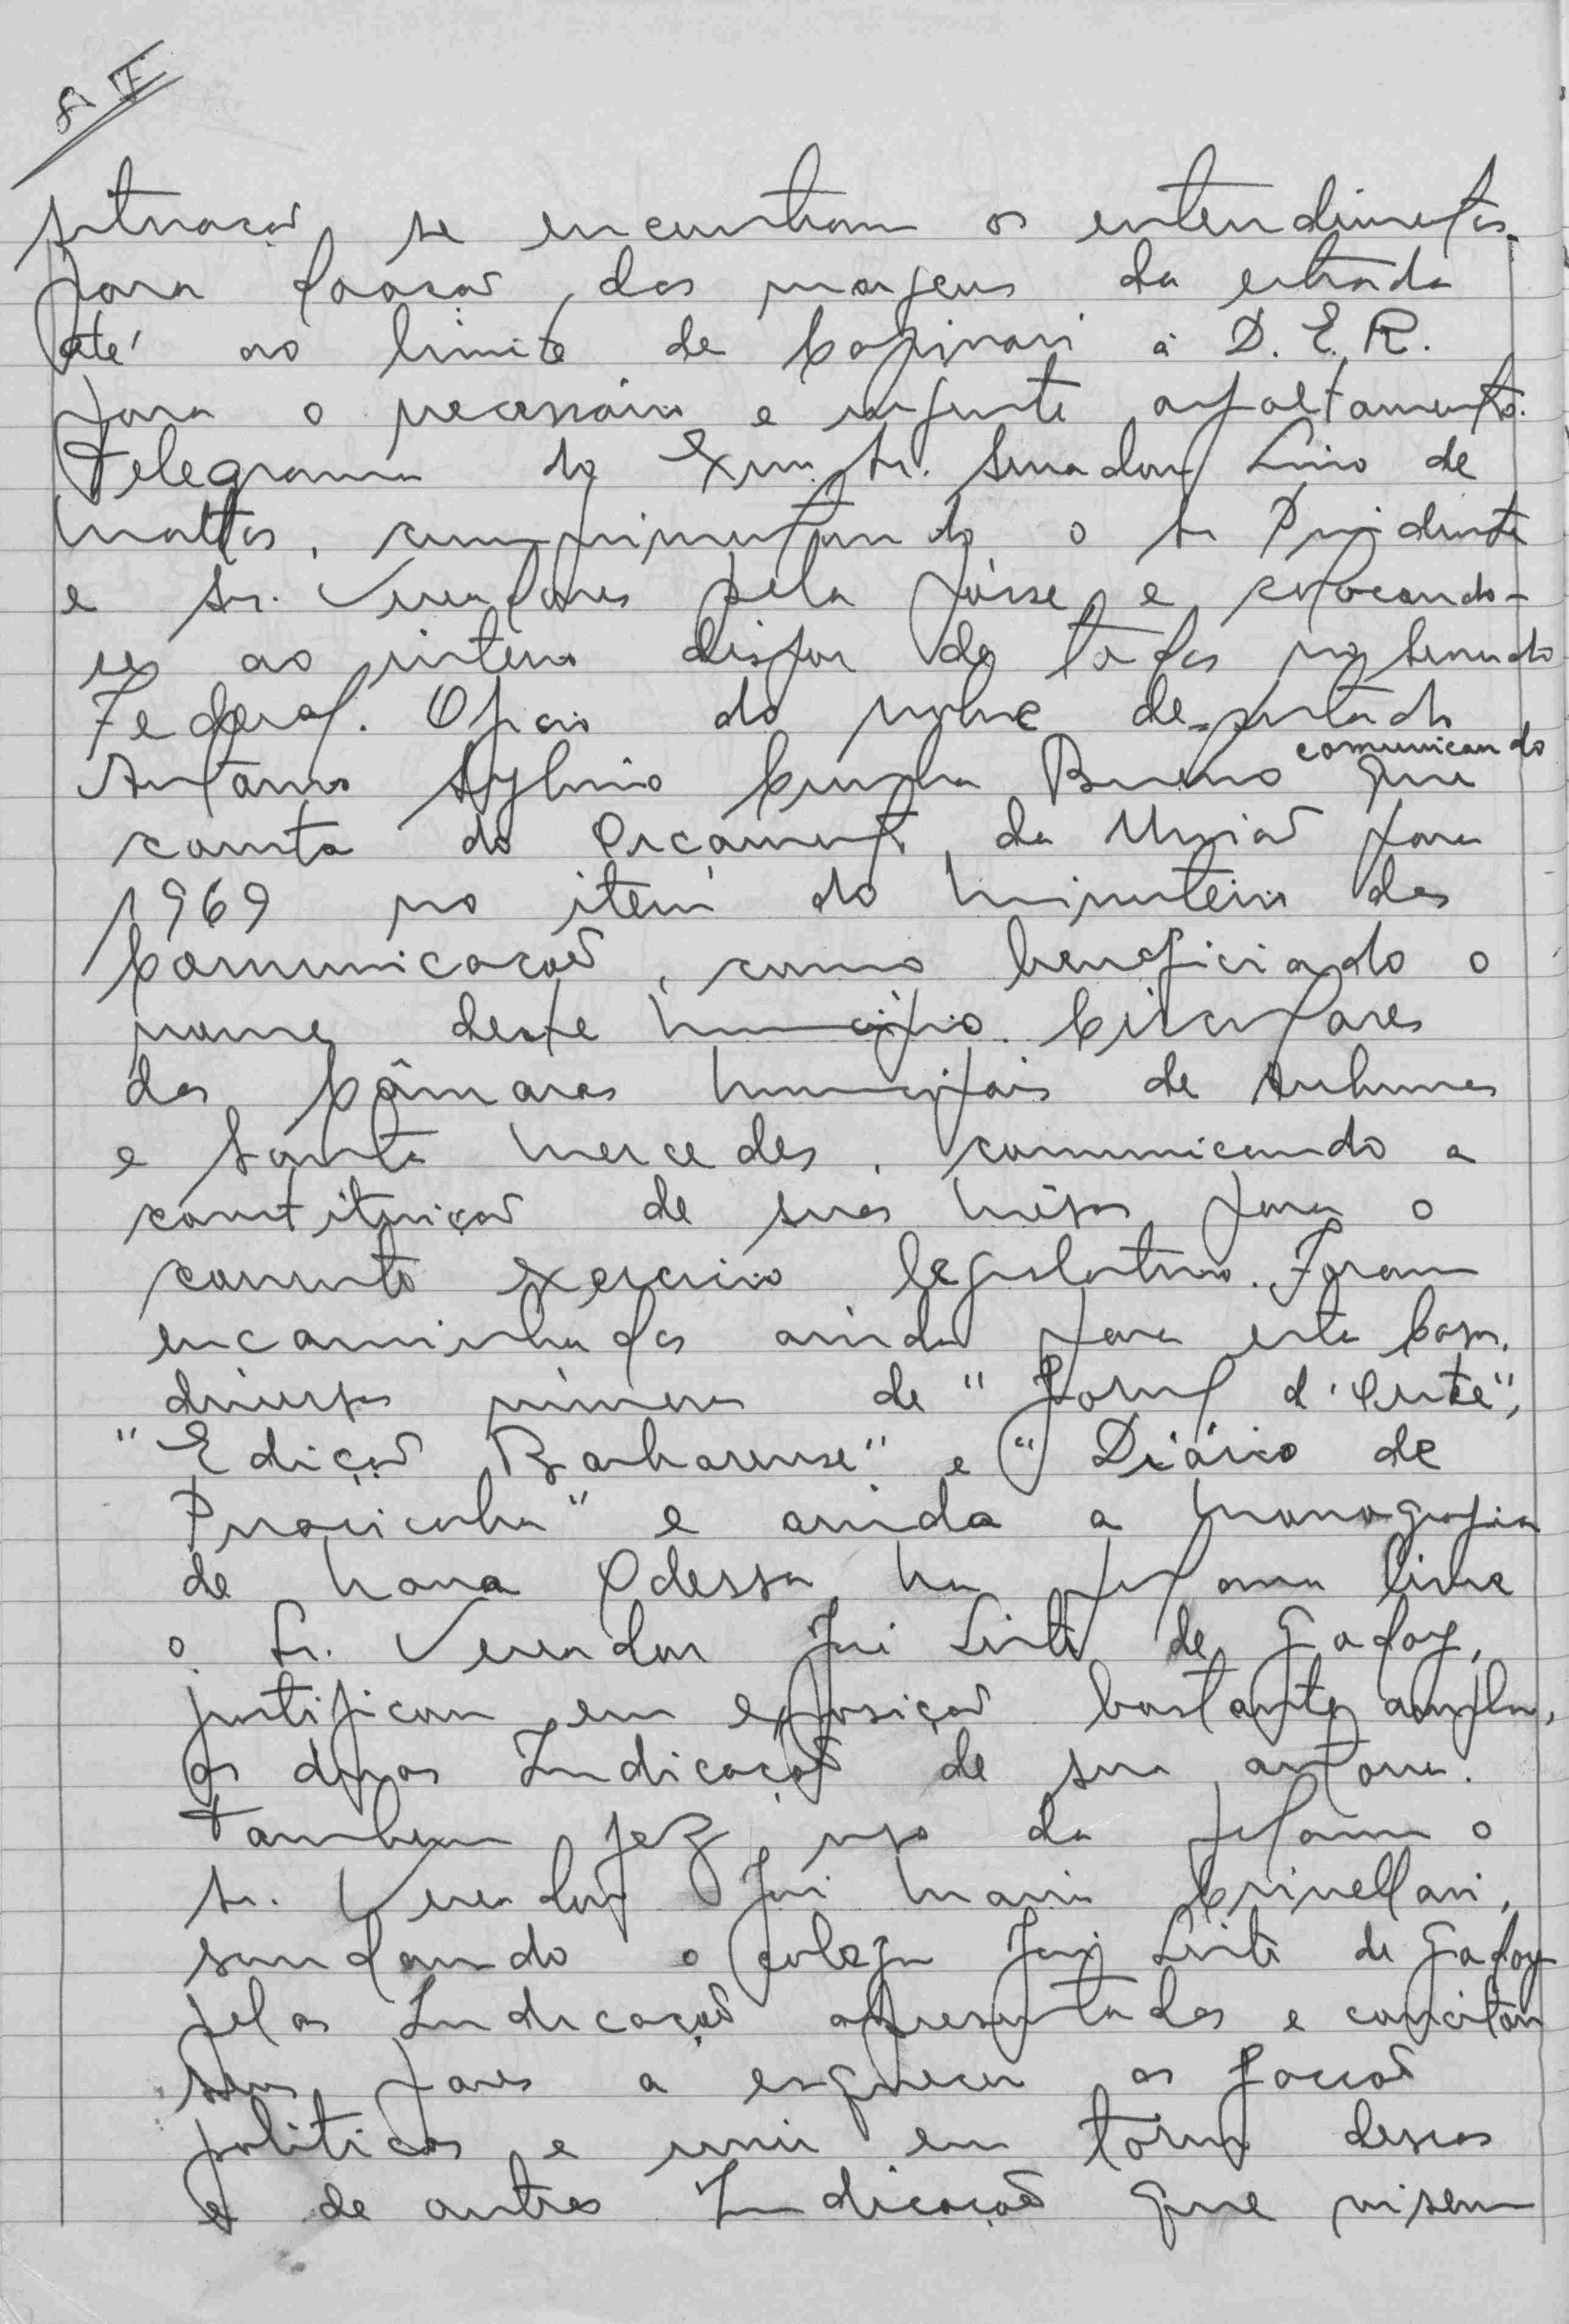 situação se encontram os entendimentos
para doação das margens da estrada
até ao limite de Capivari à D.E.R.
para o necessário e urgente asfaltamento.
Telegrama do Exmo. Sr. Senador Lino de
Mattos, cumprimentando o Sr Presidente
e Srs. Vereadores pela pósse e colocando-
se ao inteiro dispor de todos no Senado
Federal. Ofício do nobre deputado
Antonio Sylvio Cunha Bueno comunicando que
consta do Orçamento da União para
1969 no item do Ministério das
Comunicações, como beneficiado o
nome deste Município. Circulares
das Câmaras Municipais de Anhumas
e Santa Mercedes, comunicando a
constituição de suas Mesas para o
corrente exercício legislativo. Foram
encaminhados ainda para esta Casa,
diversos números de "Jornal d'Oeste",
"Edição Barbarense" e "Diário de
Piracicaba" e ainda a monografia
de Nova Odessa. Na palavra livre
o Sr. Vereador José Leite de Godoy,
justificou em exposição bastante ampla,
as duas Indicações de sua autoria.
Tambem fez uso da palavra o
Sr. Vereador José Maria Crivellari,
saudando o colega José Leite de Godoy
pelas Indicações apresentadas e concitou
seus pares a esquecer as facções
politicas e unir em torno dessas
e de outras Indicações que visem